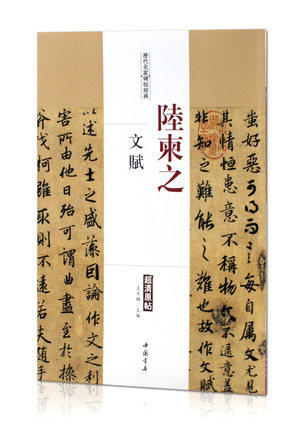 歷代名家碑帖經典
陸柬之
文賦
超清原帖
王冬梅 / 主編
中國書店
蚩好惡可得而言每自屬文尤見
其情恒患意不稱物文不逮意蓋
知之難能之難也故作文賦
以述先士之盛藻因論作文之利
害所由他日殆可謂曲盡至於操
斧伐柯雖取則不遠若夫隨手